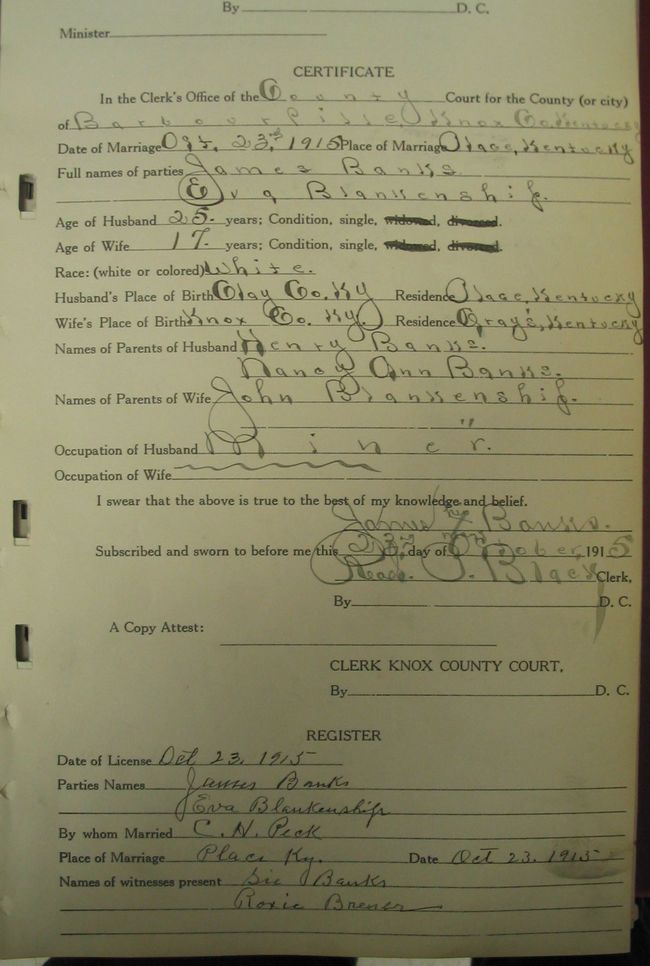 By D. C.
Minister
CERTIFICATE
In the Clerk's Office of the County Court for the County (or city)
of Barbourville, Knox Co. Kentucky
Date of Marriage Oct, 23rd, 1915 Place of Marriage Place, Kentucky
Full names of parties James Banks
Eva Blankenship.
Age of Husband 25. years; Condition, single, widowed, divorced.
Age of Wife 17. years; Condition, single, widowed, divorced.
Race: (white or colored) White.
Husband's Place of Birth Clay Co. Ky Residence Place, Kentucky
Wife's Place of Birth Knox Co. Ky. Residence Gray's, Kentucky
Names of Parents of Husband Henry Banks.
Nancy Ann Banks.
Names of Parents of Wife John Blankenship.
"
Occupation of Husband Miner.
Occupation of Wife
I swear that the above is true to the best of my knowledge and belief.
James X Banks.
Subscribed and sworn to before me this 23rd, day of October 1915
Read P. Black Clerk,
By D. C.
A Copy Attest:
CLERK KNOX COUNTY COURT,
By D. C.
REGISTER
Date of License Oct 23. 1915
Parties Names James Banks
Eva Blankenship
By whom Married C. N. Peck
Place of Marriage Place Ky. Date Oct 23. 1915
Names of witnesses present Banks
Roxie